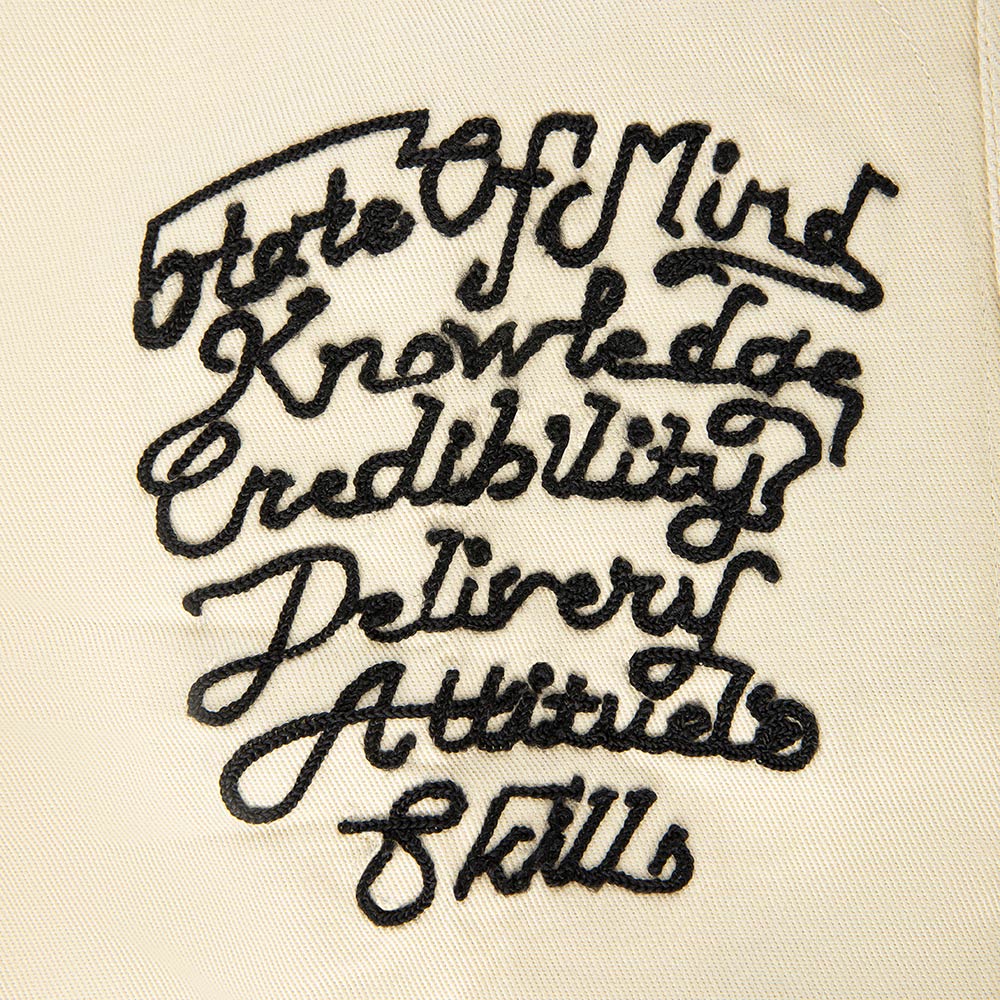 State Of Mind
Knowledge
Credibility
Delivery
Attitude
Skills